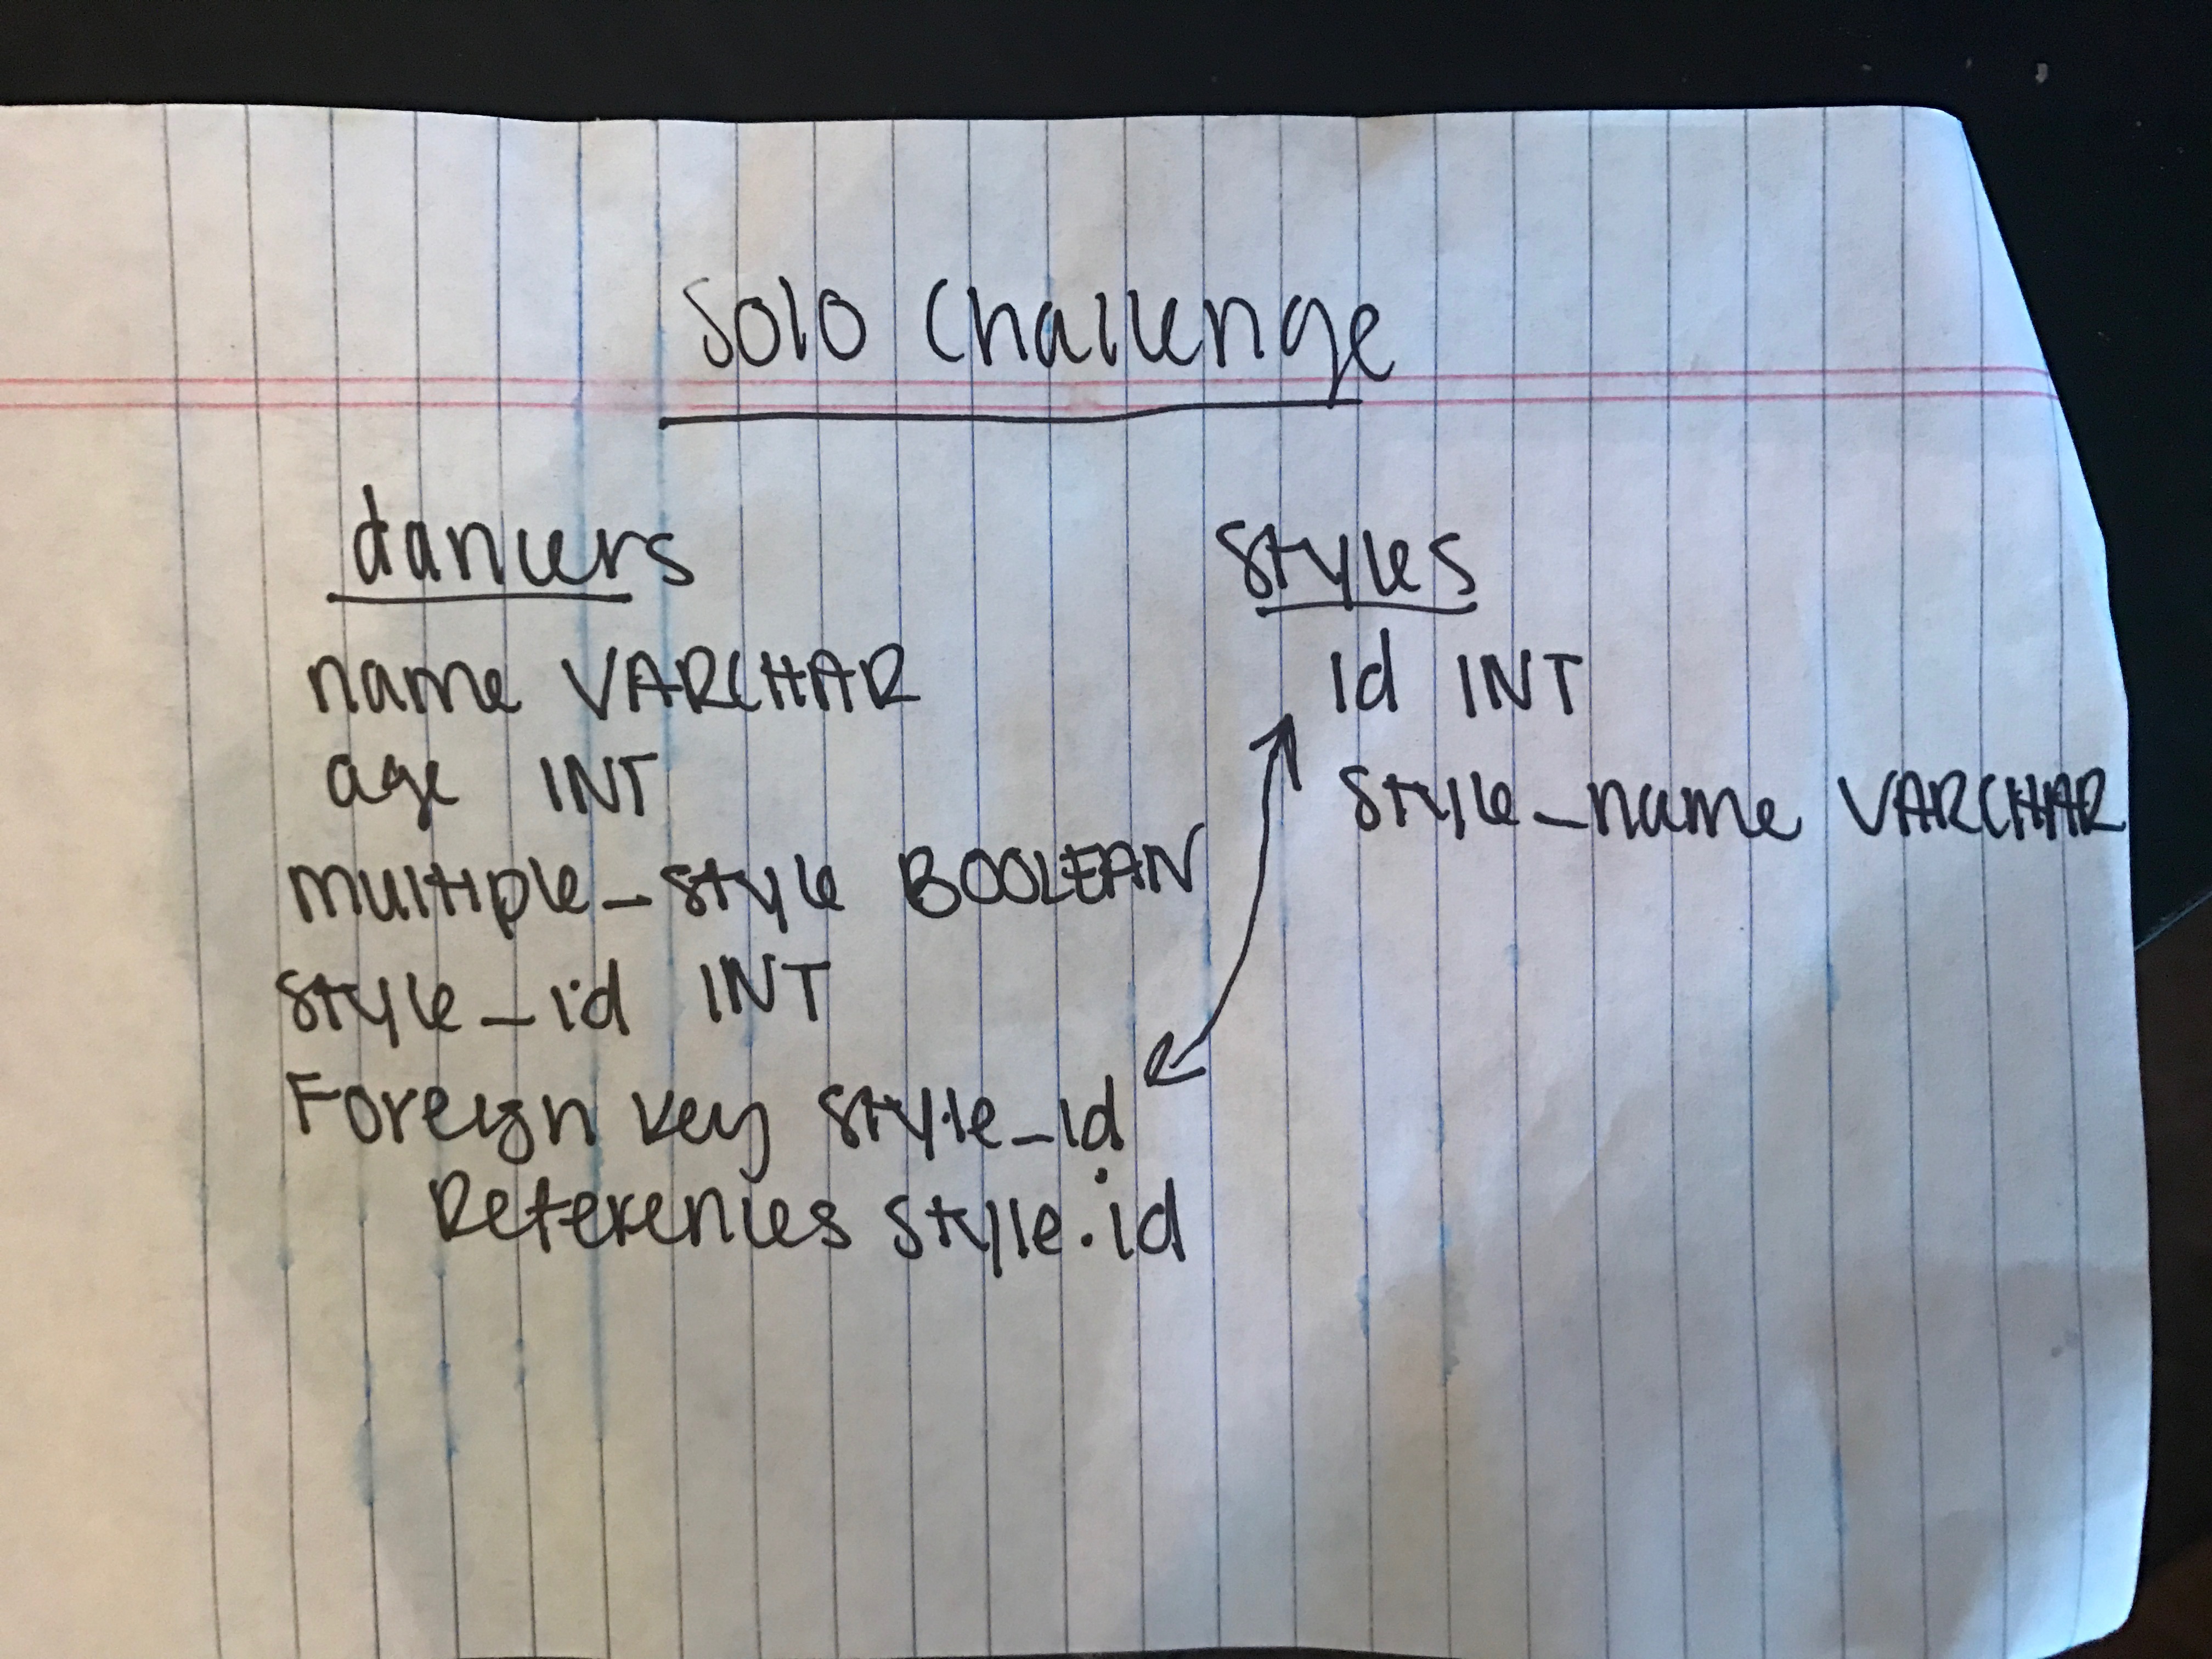 Solo Challenge
dancers
name VARCHAR
age INT
multiple_style BOOLEAN
style_id INT
Foreign key style_id
References style.id
styles
id INT
style_name VARCHAR